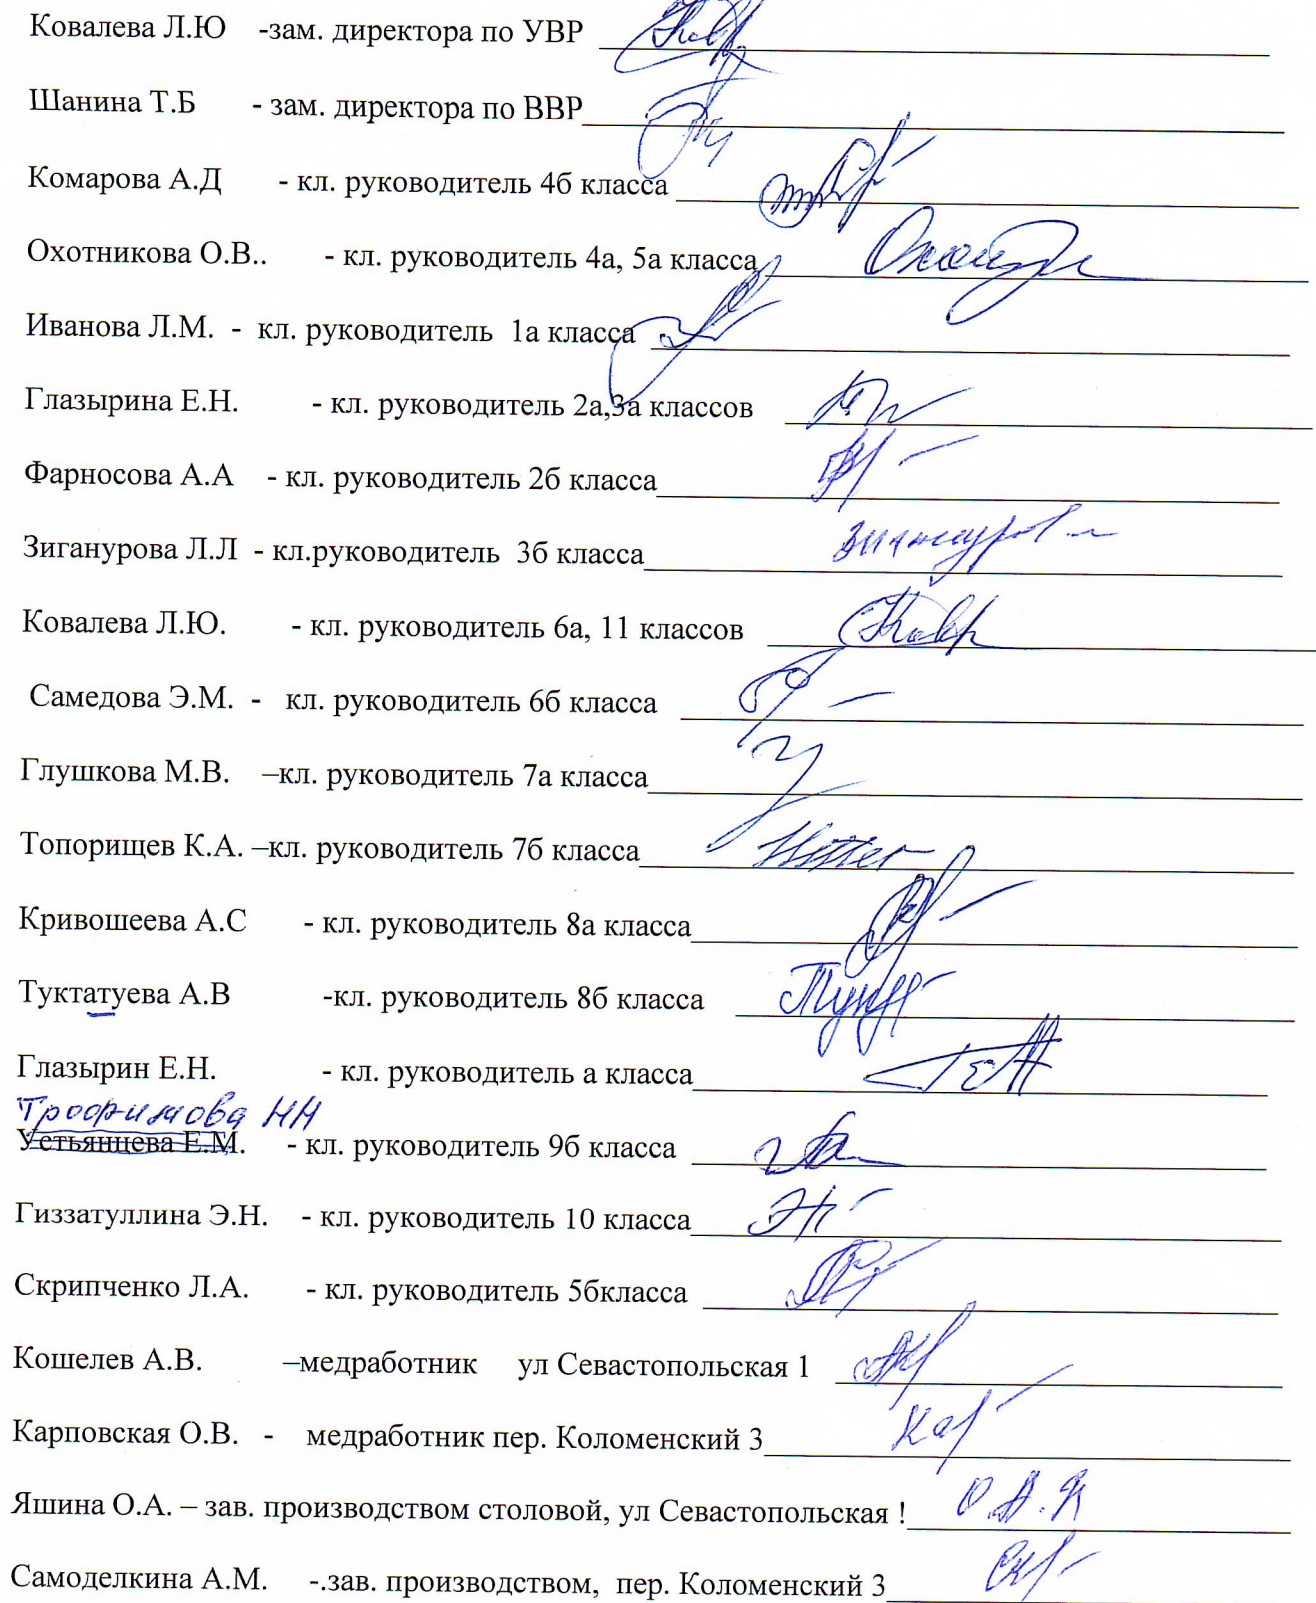 Ковалева Л.Ю -зам. директора по УВР
Шанина Т.Б - зам. директора по ВВР
Комарова А.Д - кл. руководитель 4б класса
Охотникова О.В.. - кл. руководитель 4а, 5а класса
Иванова Л.М. - кл. руководитель 1а класса
Глазырина Е.Н. - кл. руководитель 2а,3а классов
Фарносова А.А - кл. руководитель 2б класса
Зиганурова Л.Л - кл.руководитель 3б класса
Ковалева Л.Ю. - кл. руководитель 6а, 11 классов
Самедова Э.М. - кл. руководитель 6б класса
Глушкова М.В. –кл. руководитель 7а класса
Топорищев К.А. –кл. руководитель 7б класса
Кривошеева А.С - кл. руководитель 8а класса
Туктатуева А.В -кл. руководитель 8б класса
Глазырин Е.Н. - кл. руководитель а класса
Трофимова НН
Устьянцева Е.М. - кл. руководитель 9б класса
Гиззатуллина Э.Н. - кл. руководитель 10 класса
Скрипченко Л.А. - кл. руководитель 5бкласса
Кошелев А.В. –медработник ул Севастопольская 1
Карповская О.В. - медработник пер. Коломенский 3
Яшина О.А. – зав. производством столовой, ул Севастопольская !
Самоделкина А.М. -.зав. производством, пер. Коломенский 3